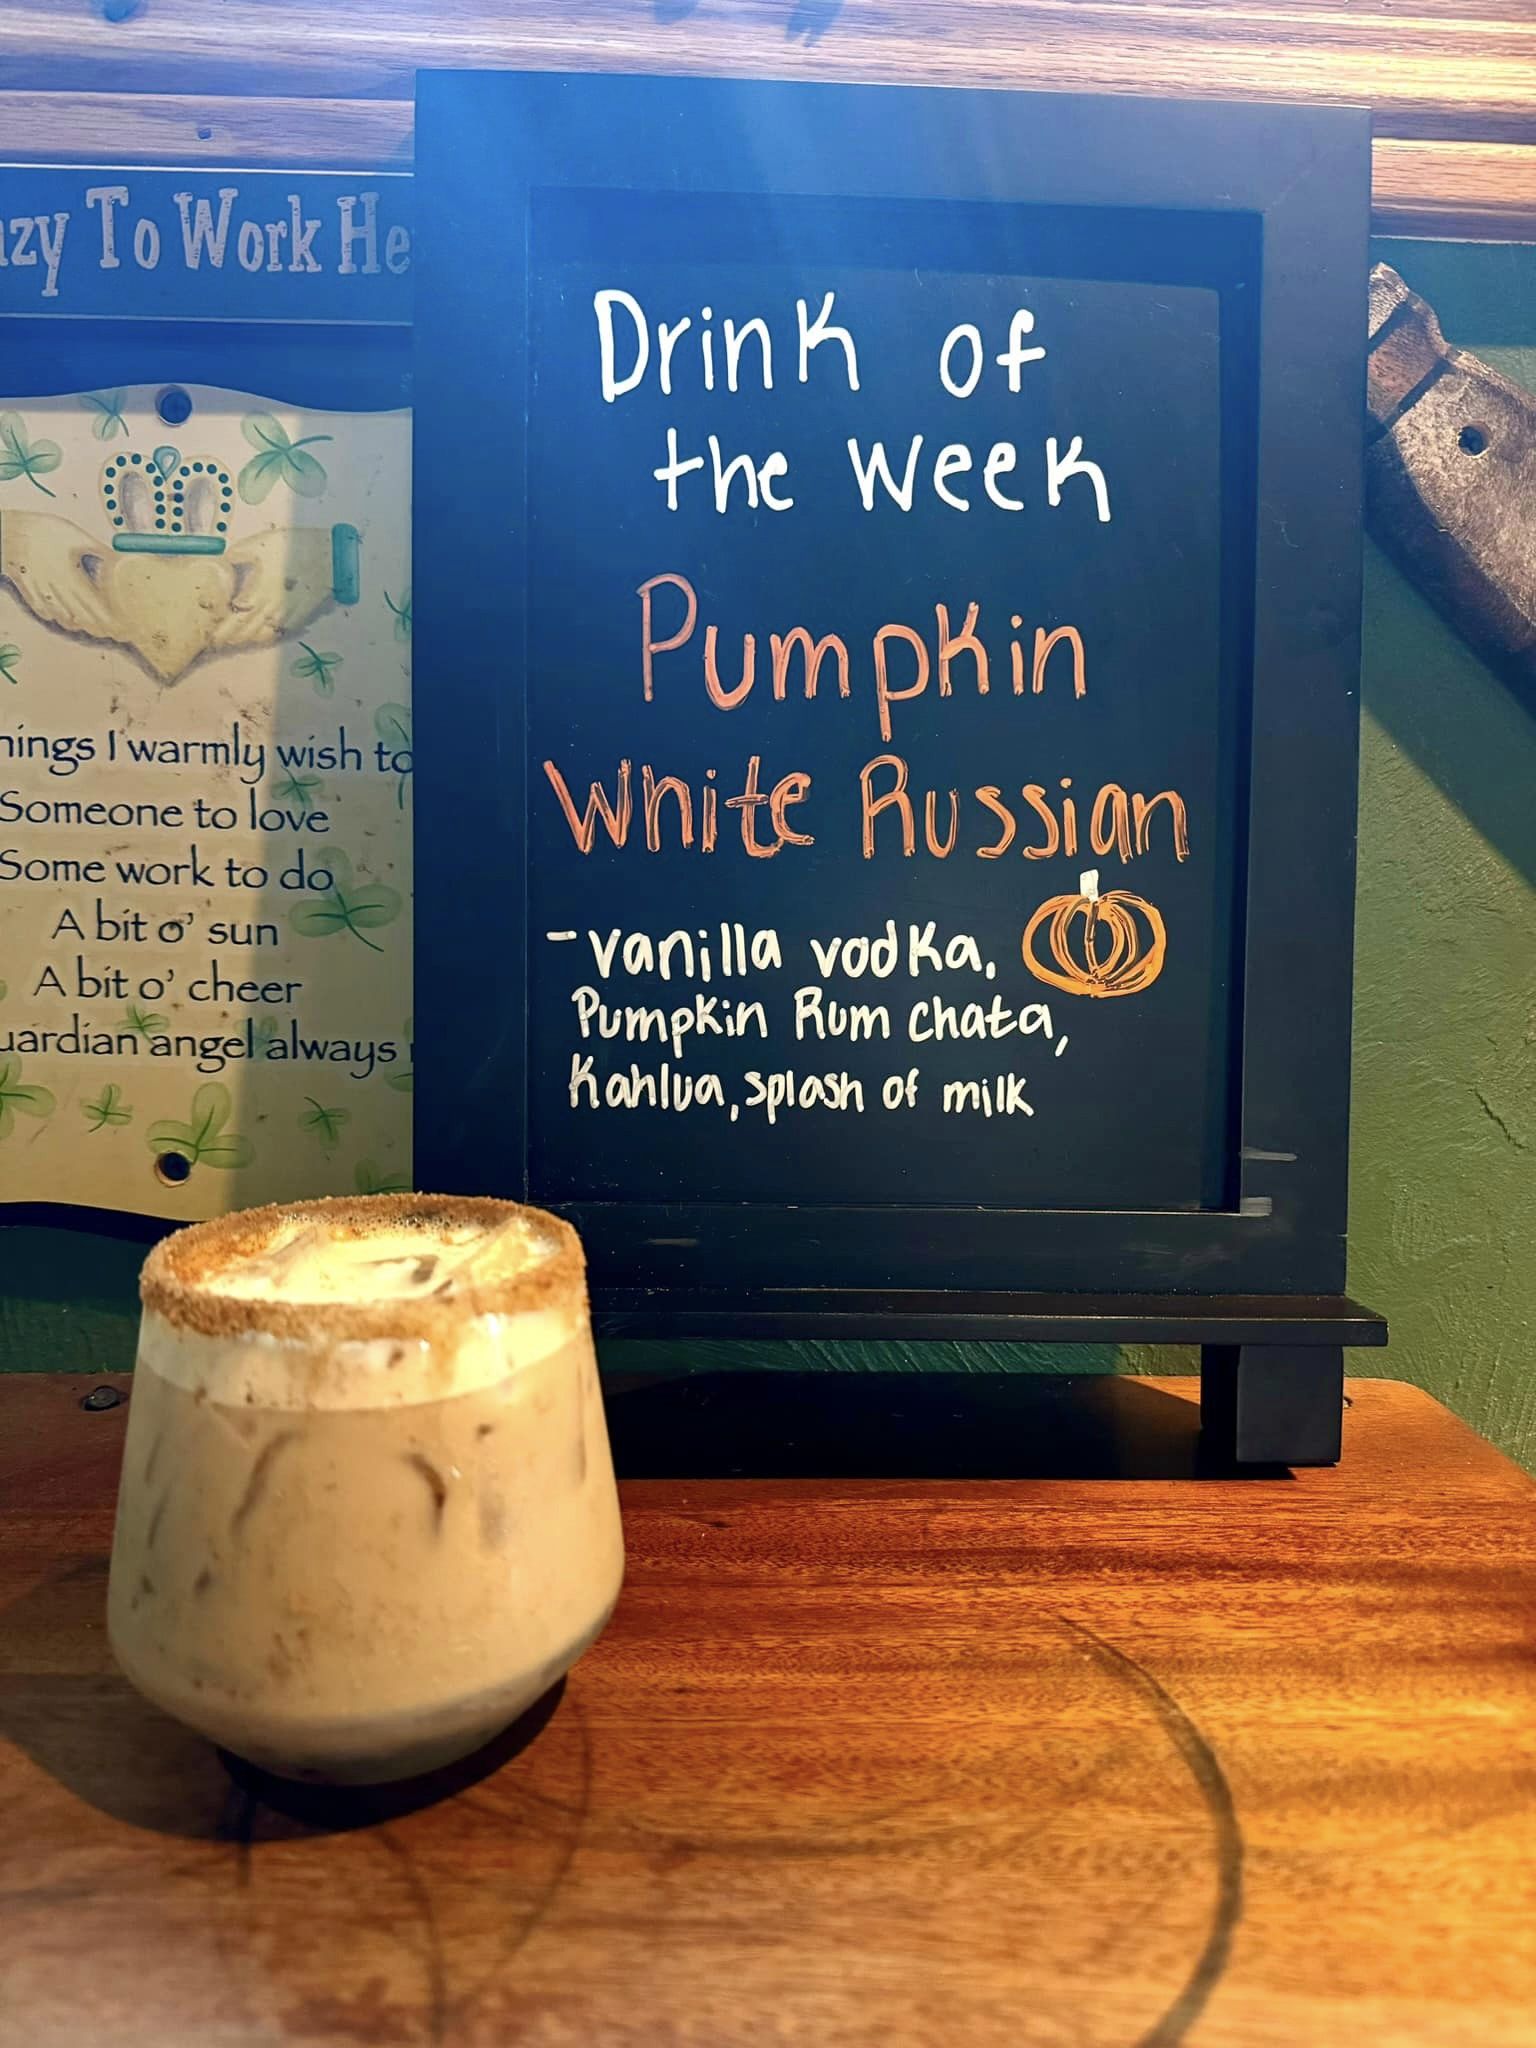 To Work
Drink of
the week
Pumpkin
White Russian
-vanilla vodka,
Pumpkin Rum chata,
Kahlua, splash of milk
I warmly wish to
Someone to love
Some work to do
A bit o' sun
A bit o' cheer
angel always